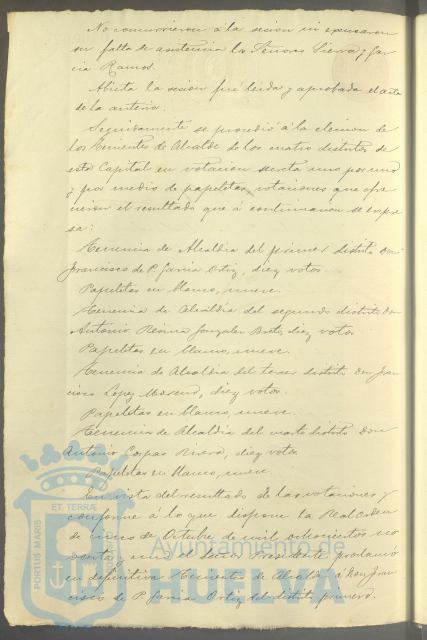 No concurrieron á la sesion ni excusaron
su falta de asistencia los Señores Sierra y Gar-
cia Ramos.
Abierta la sesion fué leida y aprobada el acta
de la anterior.
Seguidamente se procedió á la eleccion de
los Tenientes de Alcalde de los cuatro distritos de
esta Capital en votacion secreta uno por uno
y por medio de papeletas, votaciones que ofre-
cieron el resultado que á continuacion se expre-
sa:
Tenencia de Alcaldia del primer distrito Don
Francisco de P. Garcia Ortiz, diez votos.
Papeletas en blanco, nueve.
Tenencia de Alcaldia del segundo distrito Don
Antonio Gonzalez diez votos
Papeletas en blanco, nueve.
Tenencia de Alcaldia del tercer distrito Don Fran-
cisco Lopez Moreno, diez votos.
Papeletas en blanco, nueve.
Tenencia de Alcaldia del cuarto distrito Don
Antonio Corpas Rivera, diez votos.
Papeletas en blanco, nueve.
En vista del resultado de las votaciones y
conforme á lo que dispone la Real Orden
de cinco de Octubre de mil ochocientos no-
venta y uno el Señor Presidente proclamó
en definitiva Tenientes de Alcalde á Don Fran-
cisco de P. Garcia Ortiz del distrito primero.
PORTUS MARIS ET TERRÆ CUSTODIA
Ayuntamiento de
HUELVA